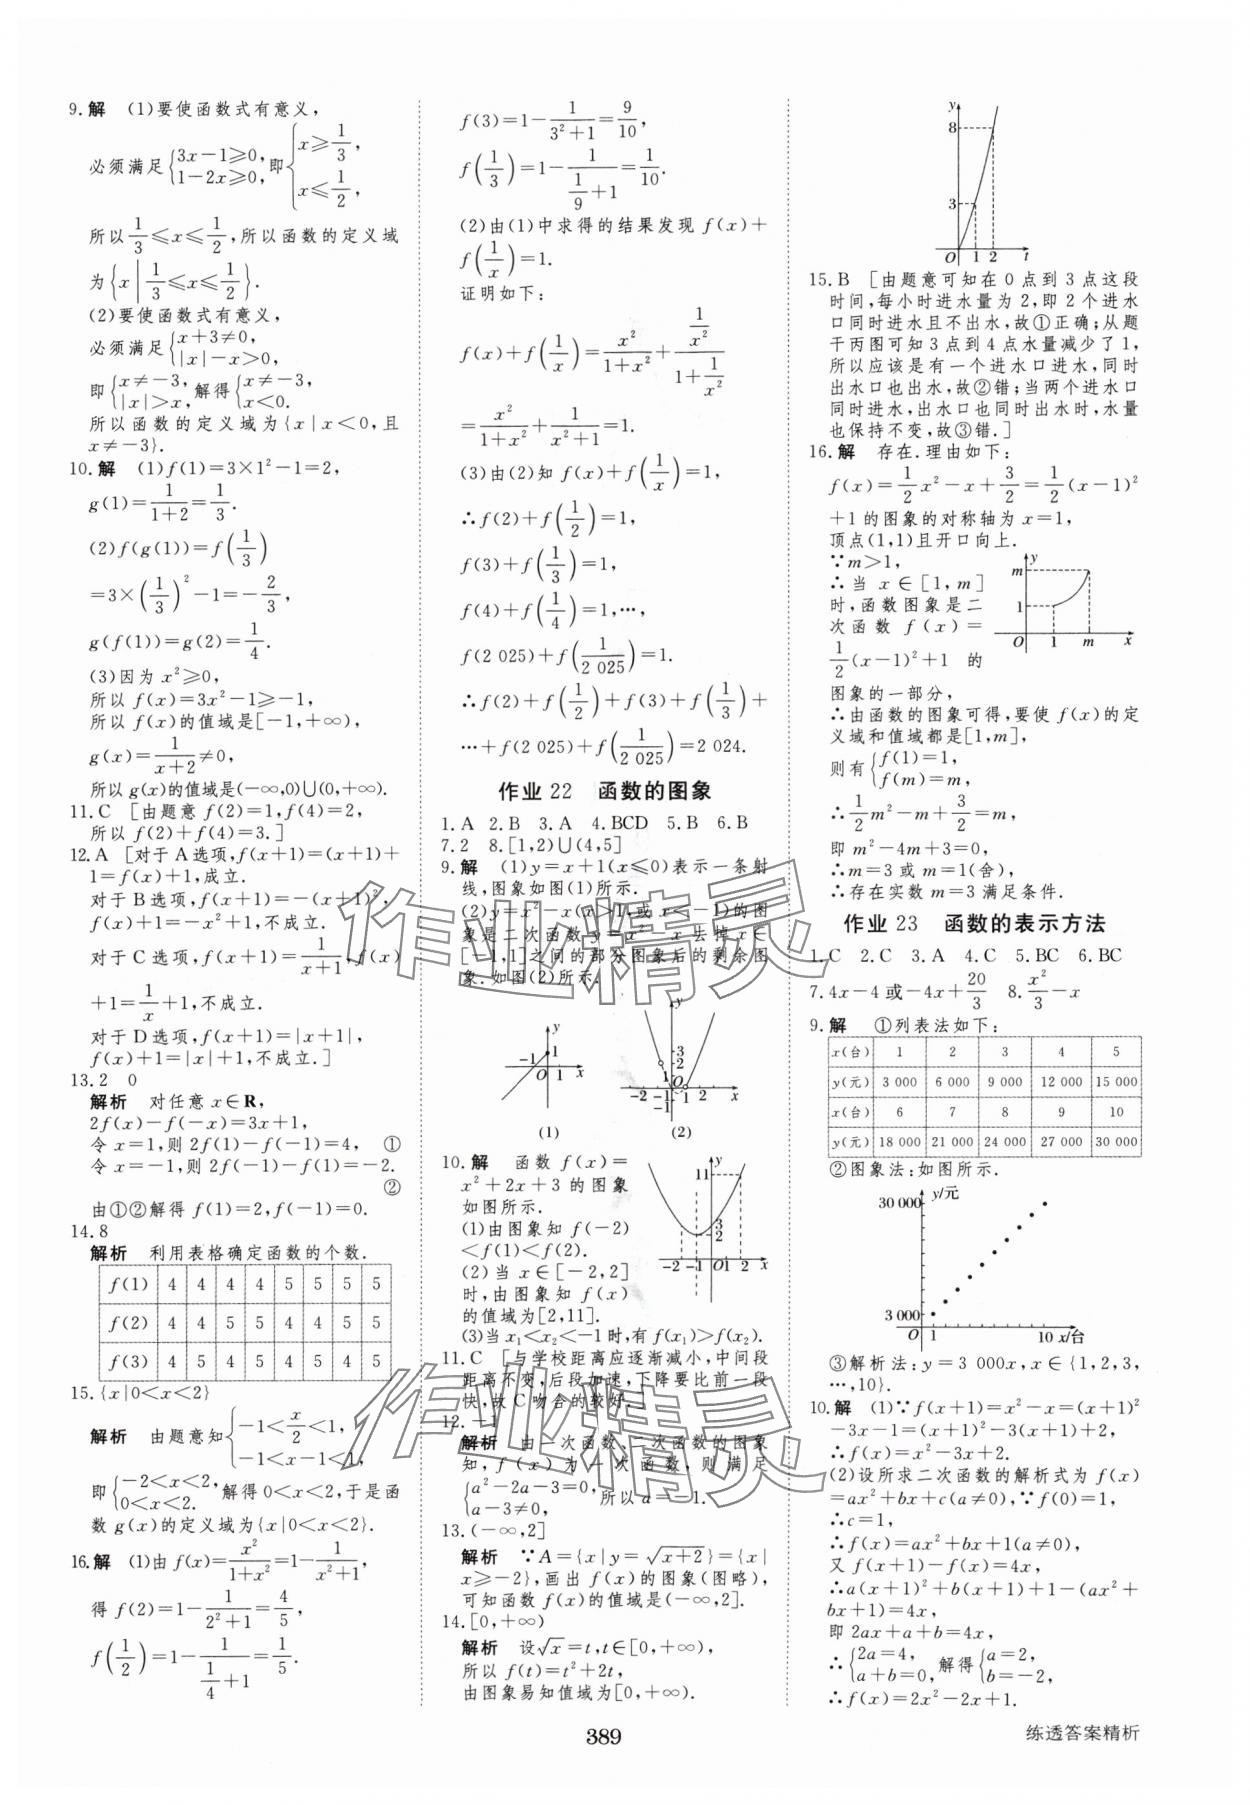 9.解 (1)要使函数式有意义,
必须满足{3x-1≥0, 1-2x≥0,即{x≥1/3, x≤1/2,
所以1/3≤x≤1/2,所以函数的定义域
为{x|1/3≤x≤1/2}.
(2)要使函数式有意义,
必须满足{x+3≠0, |x|-x>0,
即{x≠-3, |x|>x,解得{x≠-3, x<0.
所以函数的定义域为{x|x<0,且
x≠-3}.
10.解 (1)f(1)=3×1²-1=2,
g(1)=1/(1+2)=1/3.
(2)f(g(1))=f(1/3)
=3×(1/3)²-1=-2/3,
g(f(1))=g(2)=1/4.
(3)因为x²≥0,
所以f(x)=3x²-1≥-1,
所以f(x)的值域是[-1,+∞),
g(x)=1/(x+2)≠0,
所以g(x)的值域是(-∞,0)∪(0,+∞).
11.C [由题意f(2)=1,f(4)=2,
所以f(2)+f(4)=3.]
12.A [对于A选项,f(x+1)=(x+1)+
1=f(x)+1,成立.
对于B选项,f(x+1)=-(x+1)²,
f(x)+1=-x²+1,不成立.
对于C选项,f(x+1)=1/(x+1),f(x)
+1=1/x+1,不成立.
对于D选项,f(x+1)=|x+1|,
f(x)+1=|x|+1,不成立.]
13.2 0
解析 对任意x∈R,
2f(x)-f(-x)=3x+1,
令x=1,则2f(1)-f(-1)=4, ①
令x=-1,则2f(-1)-f(1)=-2.
②
由①②解得f(1)=2,f(-1)=0.
14.8
解析 利用表格确定函数的个数.
f(1) 4 4 4 4 5 5 5 5
f(2) 4 4 5 5 4 4 5 5
f(3) 4 5 4 5 4 5 4 5
15.{x|0<x<2}
解析 由题意知{-1<x/2<1, -1<x-1<1,
即{-2<x<2, 0<x<2.解得0<x<2,于是函
数g(x)的定义域为{x|0<x<2}.
16.解 (1)由f(x)=x²/(1+x²)=1-1/(x²+1),
得f(2)=1-1/(2²+1)=4/5,
f(1/2)=1-1/(1/4+1)=1/5.
f(3)=1-1/(3²+1)=9/10,
f(1/3)=1-1/(1/9+1)=1/10.
(2)由(1)中求得的结果发现f(x)+
f(1/x)=1.
证明如下:
f(x)+f(1/x)=x²/(1+x²)+(1/x²)/(1+1/x²)
=x²/(1+x²)+1/(x²+1)=1.
(3)由(2)知f(x)+f(1/x)=1,
∴f(2)+f(1/2)=1,
f(3)+f(1/3)=1,
f(4)+f(1/4)=1,…,
f(2 025)+f(1/2 025)=1.
∴f(2)+f(1/2)+f(3)+f(1/3)+
…+f(2 025)+f(1/2 025)=2 024.
作业22 函数的图象
1.A 2.B 3.A 4.BCD 5.B 6.B
7.2 8.[1,2)∪(4,5]
9.解 (1)y=x+1(x≤0)表示一条射
线,图象如图(1)所示.
(2)y=x²-x(x>1,或x<-1)的图
象是二次函数y=x²-x去掉x∈
[-1,1]之间的部分图象后的剩余图
象.如图(2)所示.
y -1 1 O 1 x
(1)
y 3 2 1 O -2 -1 1 2 x -1
(2)
10.解 函数f(x)=
x²+2x+3的图象
如图所示.
(1)由图象知f(-2)
<f(1)<f(2).
(2)当x∈[-2,2]
时,由图象知f(x)
的值域为[2,11].
y 11 3 2 -2 -1 O 1 2 x
(3)当x₁<x₂<-1时,有f(x₁)>f(x₂).
11.C [与学校距离应逐渐减小,中间段
距离不变,后段加速,下降要比前一段
快,故C吻合的较好.]
12.-1
解析 由一次函数、二次函数的图象
知,f(x)为一次函数,则满足
{a²-2a-3=0, a-3≠0,所以a=-1.
13.(-∞,2]
解析 ∵A={x|y=√(x+2)}={x|
x≥-2},画出f(x)的图象(图略),
可知函数f(x)的值域是(-∞,2].
14.[0,+∞)
解析 设√x=t,t∈[0,+∞),
所以f(t)=t²+2t,
由图象易知值域为[0,+∞).
y 8 3 O 1 2 t
15.B [由题意可知在0点到3点这段
时间,每小时进水量为2,即2个进水
口同时进水且不出水,故①正确;从题
干丙图可知3点到4点水量减少了1,
所以应该是有一个进水口进水,同时
出水口也出水,故②错;当两个进水口
同时进水,出水口也同时出水时,水量
也保持不变,故③错.]
16.解 存在.理由如下:
f(x)=1/2x²-x+3/2=1/2(x-1)²
+1的图象的对称轴为x=1,
顶点(1,1)且开口向上.
∵m>1,
∴当x∈[1,m]
时,函数图象是二
次函数f(x)=
1/2(x-1)²+1的
图象的一部分,
y m 1 O 1 m x
∴由函数的图象可得,要使f(x)的定
义域和值域都是[1,m],
则有{f(1)=1, f(m)=m,
∴1/2m²-m+3/2=m,
即m²-4m+3=0,
∴m=3或m=1(舍),
∴存在实数m=3满足条件.
作业23 函数的表示方法
1.C 2.C 3.A 4.C 5.BC 6.BC
7.4x-4或-4x+20/3 8.x²/3-x
9.解 ①列表法如下:
x(台) 1 2 3 4 5
y(元) 3 000 6 000 9 000 12 000 15 000
x(台) 6 7 8 9 10
y(元) 18 000 21 000 24 000 27 000 30 000
②图象法:如图所示.
y/元 30 000 3 000 O 1 10 x/台
③解析法:y=3 000x,x∈{1,2,3,
…,10}.
10.解 (1)∵f(x+1)=x²-x=(x+1)²
-3x-1=(x+1)²-3(x+1)+2,
∴f(x)=x²-3x+2.
(2)设所求二次函数的解析式为f(x)
=ax²+bx+c(a≠0),∵f(0)=1,
∴c=1,
∴f(x)=ax²+bx+1.
又f(x+1)-f(x)=4x,
∴a(x+1)²+b(x+1)+1-(ax²+
bx+1)=4x,
即2ax+a+b=4x,
∴{2a=4, a+b=0,解得{a=2, b=-2,
∴f(x)=2x²-2x+1.
389
练透答案精析
作业精灵
作业精灵